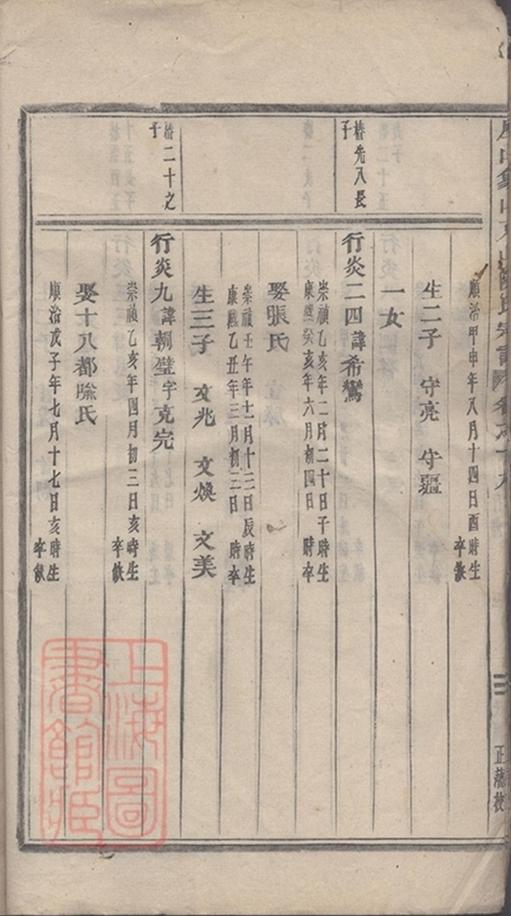 氏宗譜
順治甲申年八月十四日酉時生
卒缺
生二子 守亮 守疆
一女
椿先八長
子
行炎二四諱希鸞
崇禎乙亥年二月二十日子時生
康熙癸亥年六月初四日 時卒
娶張氏
崇禎壬午年十二月十三日辰時生
康熙乙丑年三月初三日 時卒
生三子 文兆 文煥 文美
椿二十之
子
行炎九諱朝璧字克完
崇禎乙亥年四月初三日亥時生
卒缺
娶十八都喻氏
順治戊子年七月十七日亥時生
卒缺
上海圖
書館藏